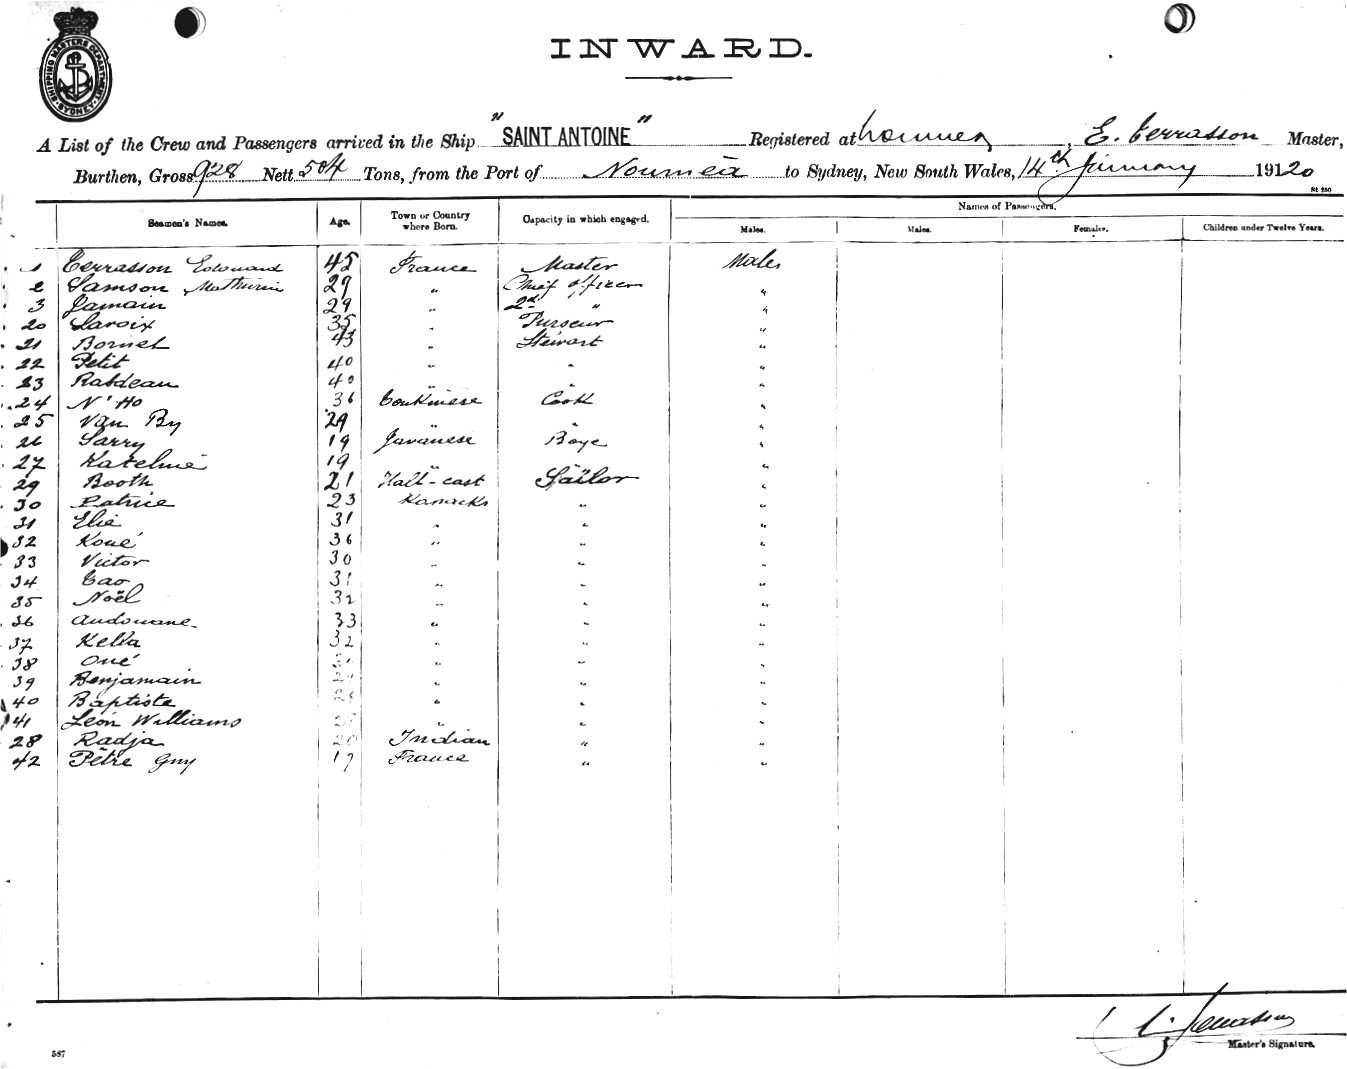 SHIPPING MASTERS DEPARTMENT SYDNEY
INWARD.
A List of the Crew and Passengers arrived in the Ship "SAINT ANTOINE" Registered at Noumea, E. Cerrasson Master,
Burthen, Gross 928 Nett 504 Tons, from the Port of Nouméa to Sydney, New South Wales, 14th January 19120
St 230
Seamen's Names. Age. Town or Country where Born. Capacity in which engaged. Names of Passengers.
Males. Males. Females. Children under Twelve Years.
1 Cerrasson Edouard 45 France Master Males
2 Samson Mathurin 29 " Chief officer "
3 Jamain 29 " 2d " "
20 Laroix 35 " Purseur "
21 Bornet 43 " Stewart "
22 Petit 40 " " "
23 Rabdeau 40 " " "
24 N'Ho 36 Tonkinese Cook "
25 Van By 29 " " "
26 Sarry 19 Javanese Boye "
27 Katelmé 19 " " "
29 Booth 21 Half-cast Sailor "
30 Patrice 23 Kanacks " "
31 Elie 31 " " "
32 Koué 36 " " "
33 Victor 30 " " "
34 Cao 31 " " "
35 Noël 32 " " "
36 Audouane 33 " " "
37 Kella 32 " " "
38 Oué " " "
39 Benjamain " " "
40 Baptiste 28 " " "
41 Léon Williams " " "
28 Radja 20 Indian " "
42 Pêtre Guy 17 France " "
Master's Signature.
587